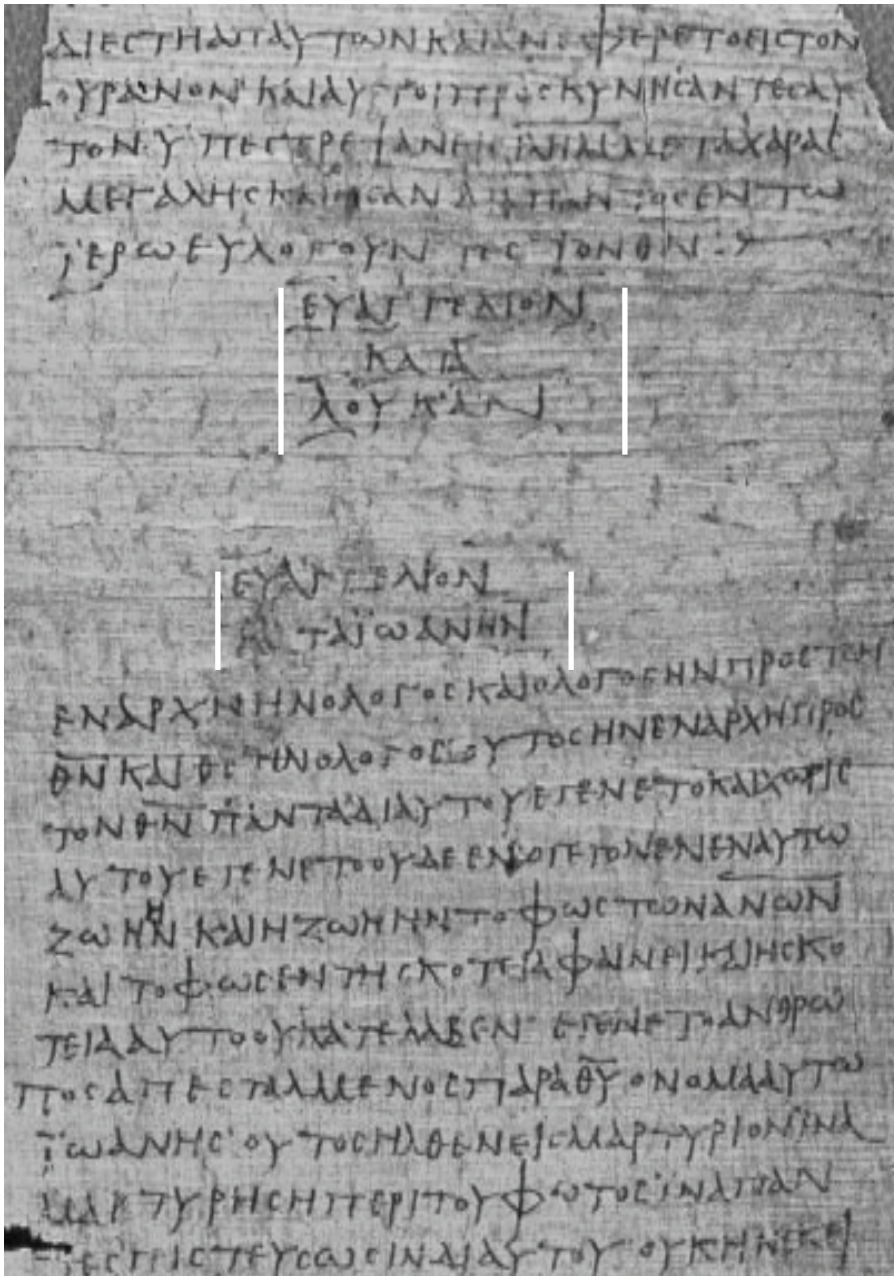 ΔΙΕϹΤΗΑΠΑΥΤΩΝΚΑΙΑΝΕΦΕΡΕΤΟΕΙϹΤΟΝ
ΟΥΡΑΝΟΝ·ΚΑΙΑΥΤΟΙΠΡΟϹΚΥΝΗϹΑΝΤΕϹΑΥ
ΤΟΝΥΠΕϹΤΡΕΨΑΝΕΙϹΙΗΛΜΜΕΤΑΧΑΡΑϹ
ΜΕΓΑΛΗϹΚΑΙΗϹΑΝΔΙΑΠΑΝΤΟϹΕΝΤΩ
ΪΕΡΩΕΥΛΟΓΟΥΝΤΕϹΤΟΝΘ̅Ν̅:>
ΕΥΑΓΓΕΛΙΟΝ
ΚΑΤΑ
ΛΟΥΚΑΝ
ΕΥΑΓΓΕΛΙΟΝ
ΚΑΤΑΪΩΑΝΗΝ
ΕΝΑΡΧΗΗΝΟΛΟΓΟϹΚΑΙΟΛΟΓΟϹΗΝΠΡΟϹΤΟΝ
Θ̅Ν̅ΚΑΙΘ̅Ϲ̅ΗΝΟΛΟΓΟϹΟΥΤΟϹΗΝΕΝΑΡΧΗΠΡΟϹ
ΤΟΝΘ̅Ν̅ΠΑΝΤΑΔΙΑΥΤΟΥΕΓΕΝΕΤΟΚΑΙΧΩΡΙϹ
ΑΥΤΟΥΕΓΕΝΕΤΟΟΥΔΕΕΝ·ΟΓΕΓΟΝΕΝΕΝΑΥΤΩ
ΖΩΗΗΝΚΑΙΗΖΩΗΗΝΤΟΦΩϹΤΩΝΑ̅Ν̅Ω̅Ν̅
ΚΑΙΤΟΦΩϹΕΝΤΗϹΚΟΤΕΙΑΦΑΙΝΕΙΚΑΙΗϹΚΟ
ΤΕΙΑΑΥΤΟΟΥΚΑΤΕΛΑΒΕΝ·ΕΓΕΝΕΤΟΑΝΘΡΩ
ΠΟϹΑΠΕϹΤΑΛΜΕΝΟϹΠΑΡΑΘ̅Υ̅ΟΝΟΜΑΑΥΤΩ
ΪΩΑΝΗϹ·ΟΥΤΟϹΗΛΘΕΝΕΙϹΜΑΡΤΥΡΙΟΝΪΝΑ
ΜΑΡΤΥΡΗϹΗΠΕΡΙΤΟΥΦΩΤΟϹΪΝΑΠΑΝ
ΤΕϹΠΙϹΤΕΥϹΩϹΙΝΔΙΑΥΤΟΥΟΥΚΗΝΕΚΕΙ